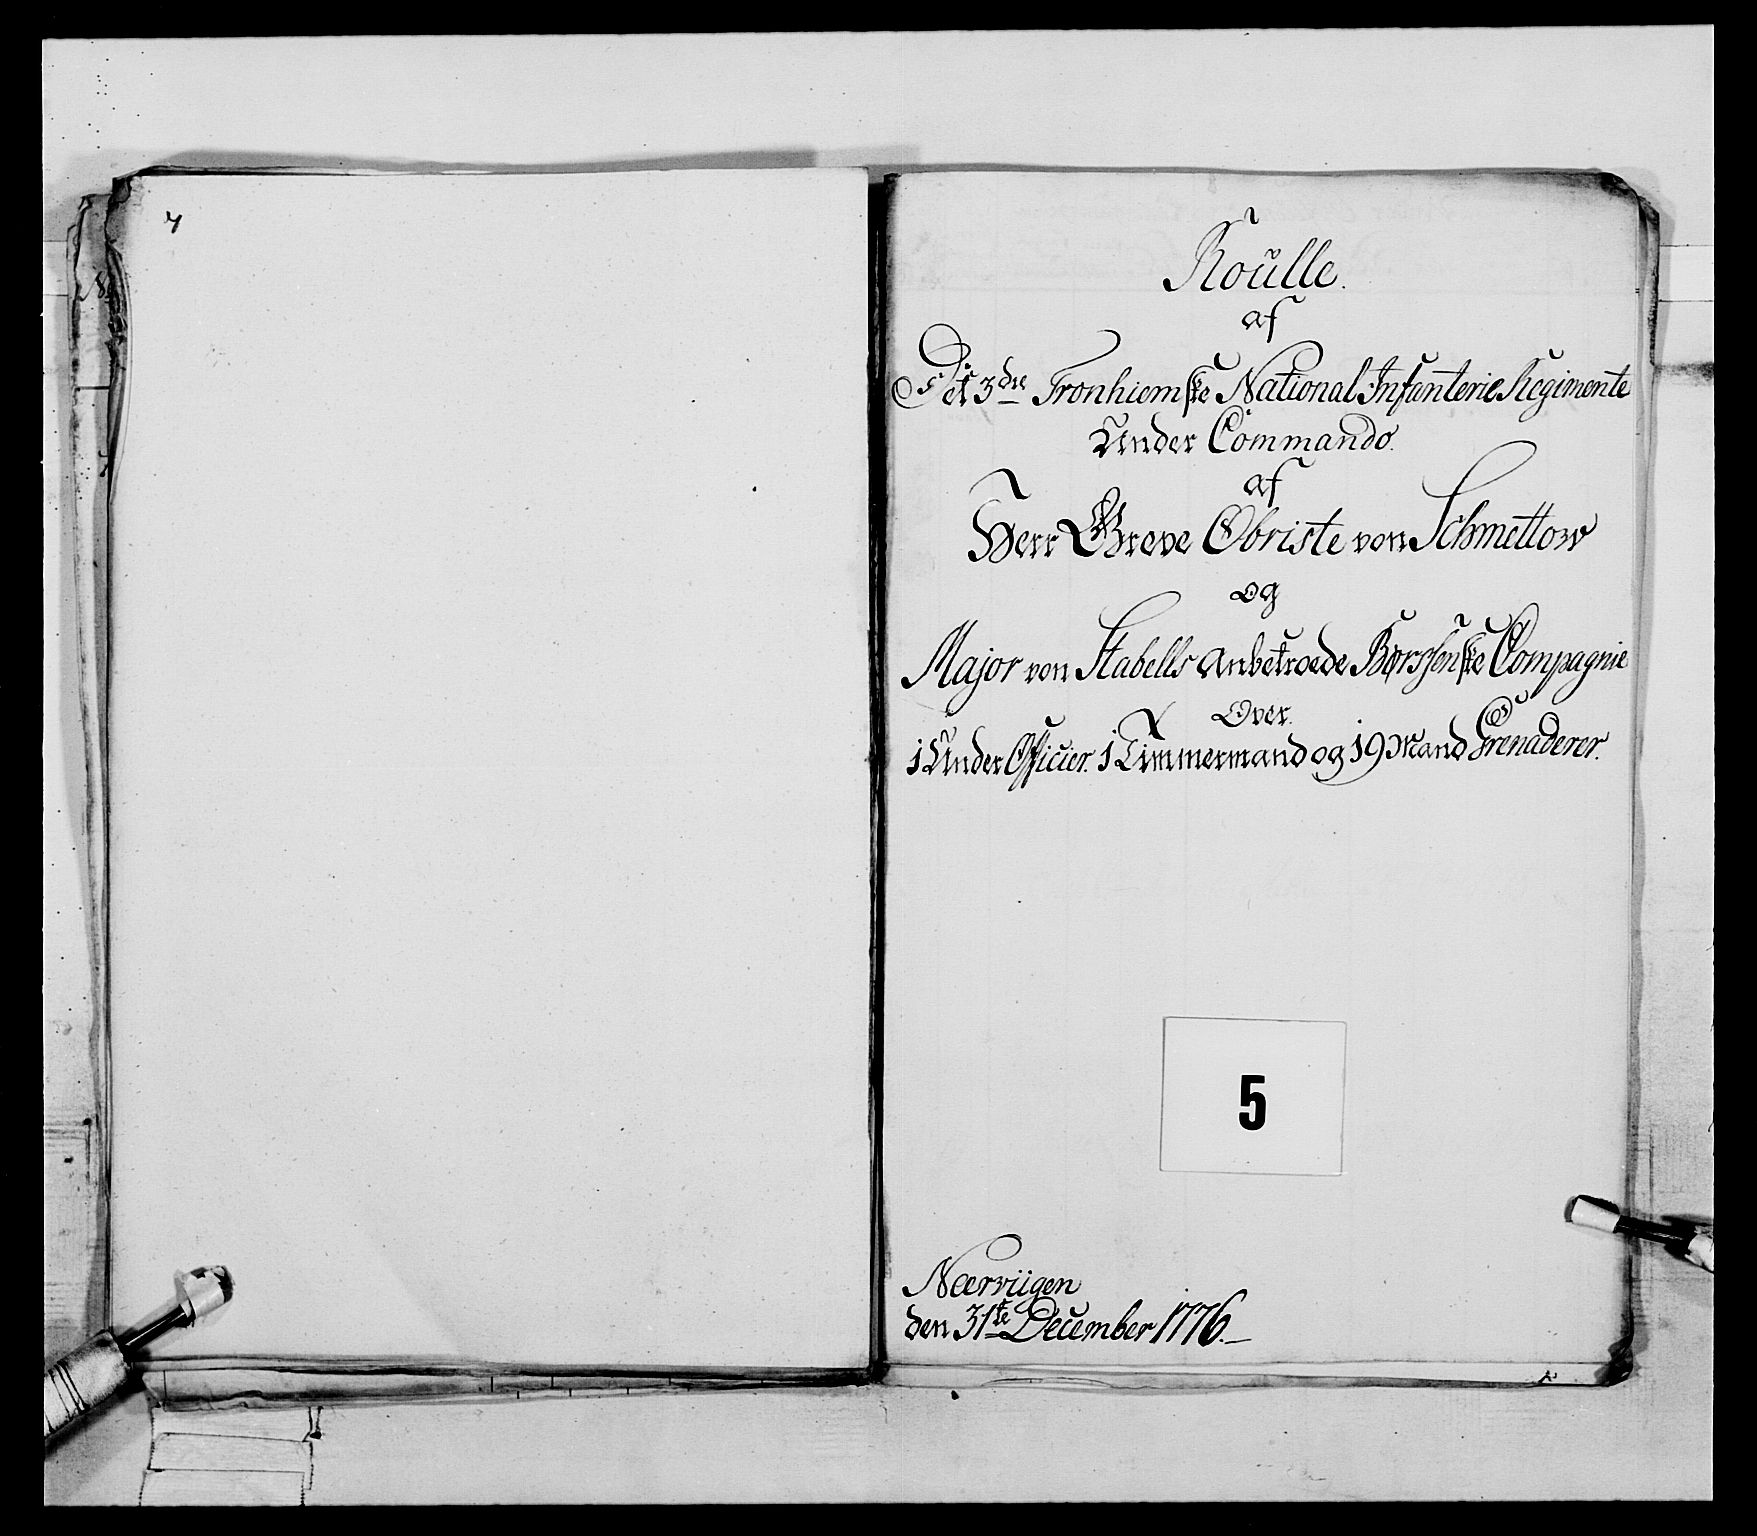 Roulle.
af
Det 3die Tronhiemske National Infanterie Regimente
Under Commando.
af
Herr Greve Obriste von Schmettow
og
Major von Stabells anbetroede Børssenske Compagnie
Over.
1 Under Officier. 1 Timmermand og 19 Mand Grenaderer.
5
Nærviigen
den 31te December 1776.